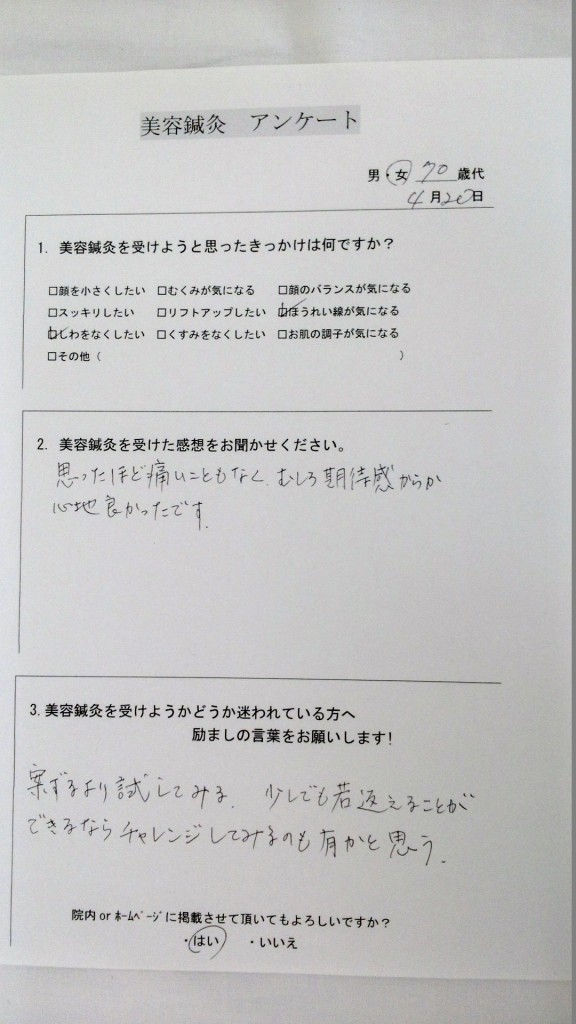 美容鍼灸　アンケート
男・女 70 歳代
4月20日
1. 美容鍼灸を受けようと思ったきっかけは何ですか？
□顔を小さくしたい □むくみが気になる □顔のバランスが気になる
□スッキリしたい □リフトアップしたい ☑ほうれい線が気になる
☑しわをなくしたい □くすみをなくしたい □お肌の調子が気になる
□その他（　）
2. 美容鍼灸を受けた感想をお聞かせください。
思ったほど痛いこともなく、むしろ期待感からか
心地良かったです。
3.美容鍼灸を受けようかどうか迷われている方へ
励ましの言葉をお願いします！
案ずるより試してみる、少しでも若返えることが
できるならチャレンジしてみるのも有かと思う。
院内 or ﾎｰﾑﾍﾟｰｼﾞに掲載させて頂いてもよろしいですか？
・はい ・いいえ